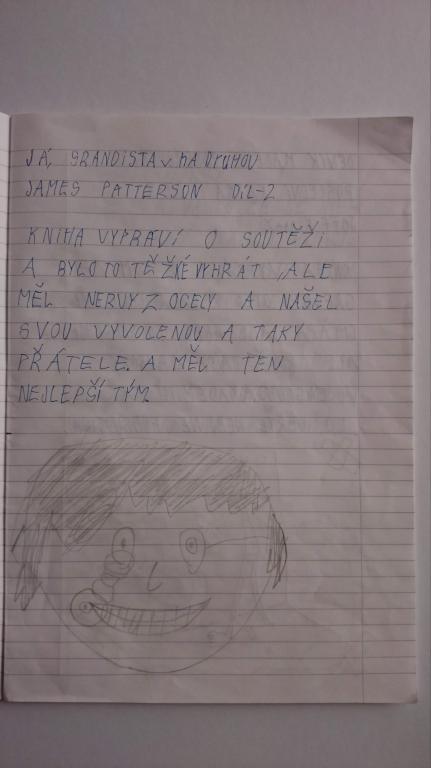 JÁ, SRANDISTA V NA DRUHOU
JAMES PATTERSON DíL-2
KNIHA VYPRAVÍ O SOUTĚŽi
A BYLO TO TĚŽKÉ VYHRÁT, ALE
MĚL NERVY Z OCELY A NAŠEL
SVOU VYVOLENOU A TAKY
PŘÁTELE. A MĚL TEN
NEJLEPŠÍ TÝM.